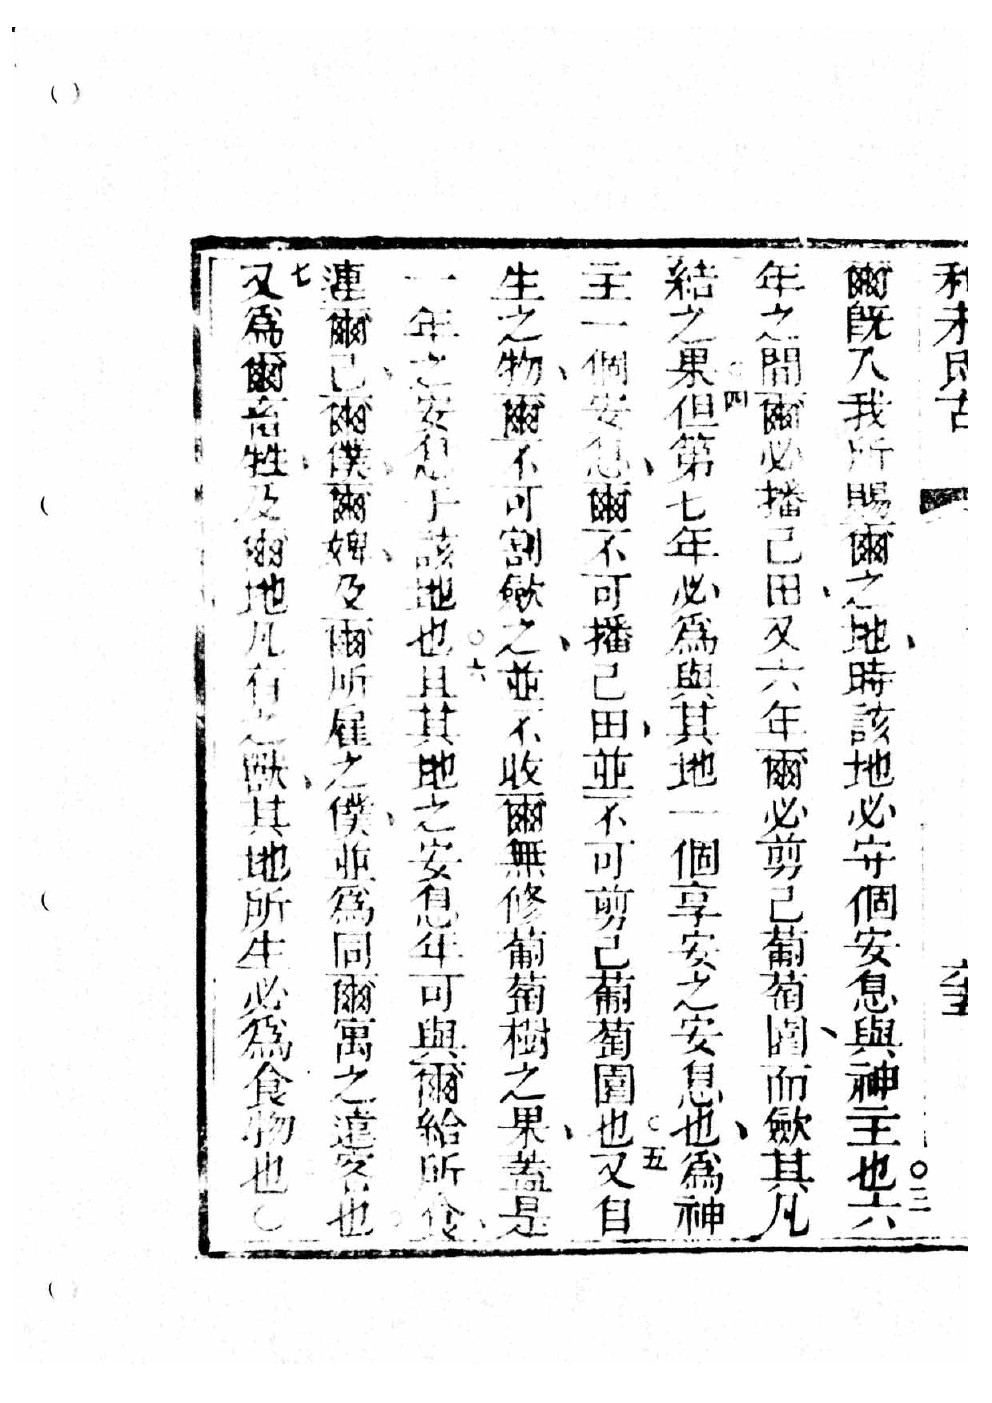 爾既入我所賜爾之地、時該地必守個安息與神主也○三六
年之間爾必播己田、又六年爾必剪己葡萄園、而歛其凡
結之果○四但第七年必為與其地一個享安之安息也、為神
主一個安息、爾不可播己田、並不可剪己葡萄園也○五又自
生之物、爾不可割歛之、並不收爾無修葡萄樹之果、蓋是
一年之安息于該地也○六且其地之安息年可與爾給所食、
連爾己、爾僕、爾婢、及爾所雇之僕、並為同爾寓之遠客也○
七又為爾畜牲、及爾地凡有之獸、其地所生必為食物也○